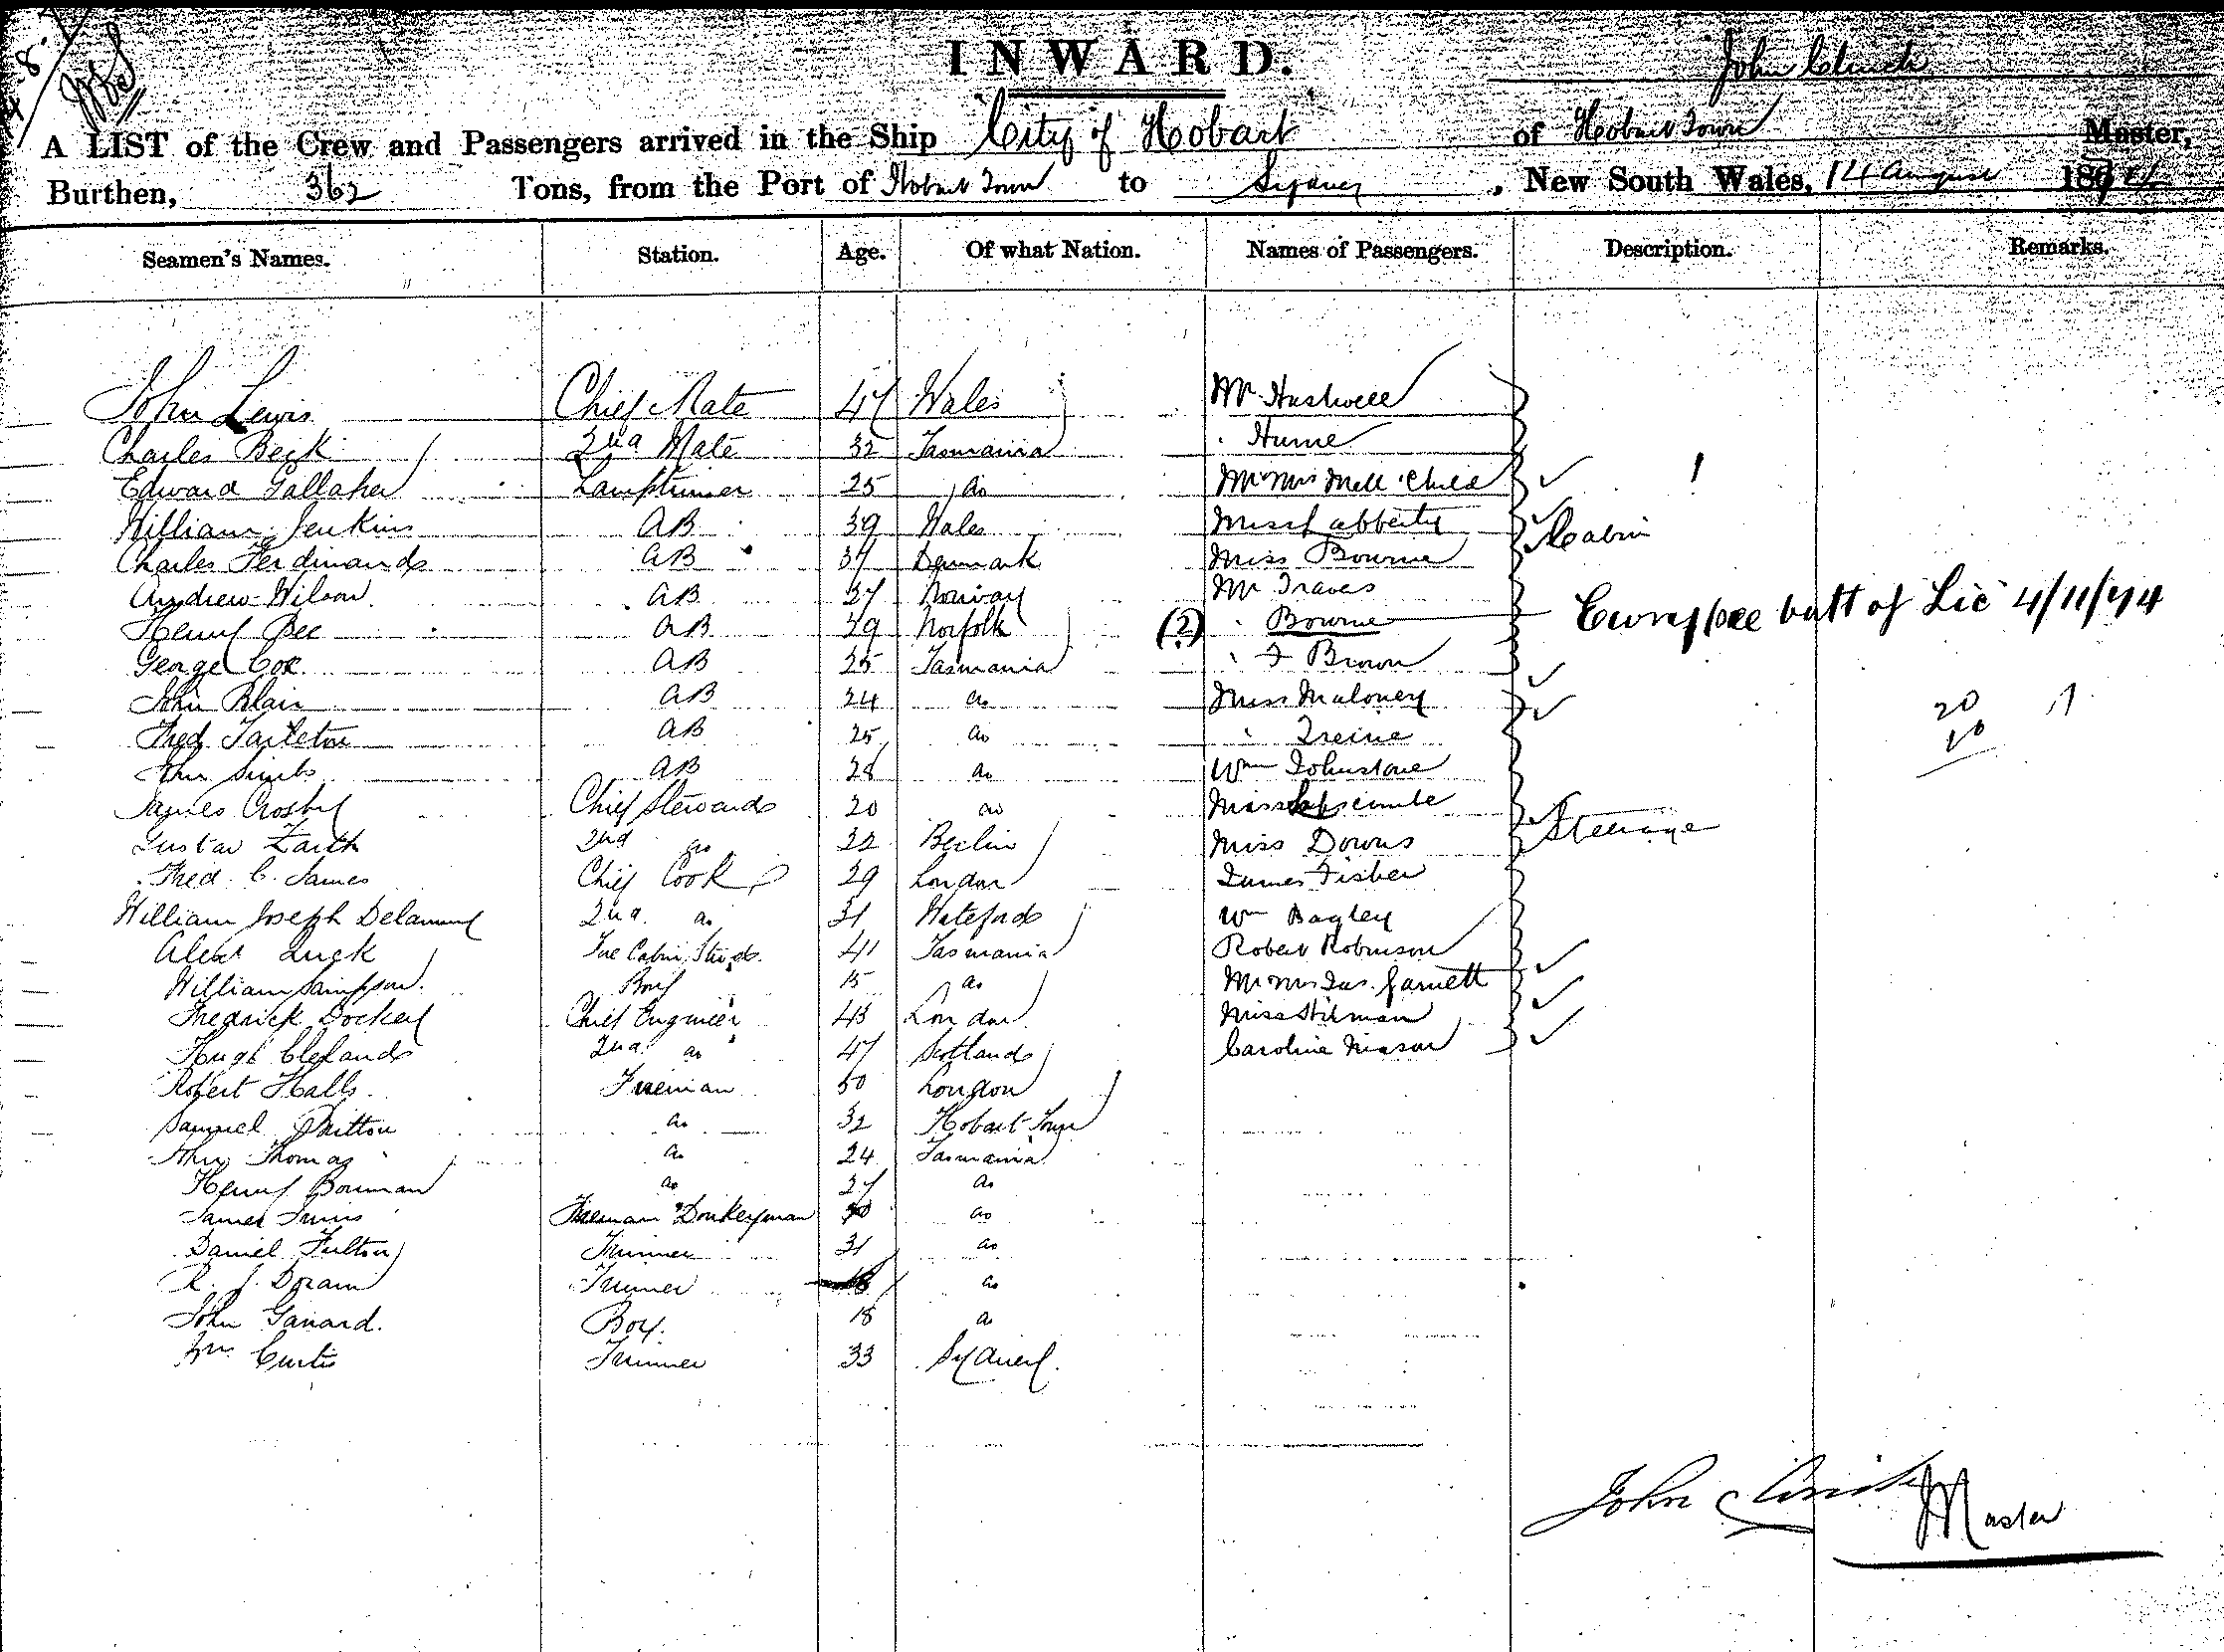 INWARD.
John Clinch
A LIST of the Crew and Passengers arrived in the Ship City of Hobart of Hobart Town Master,
Burthen, 362 Tons, from the Port of Hobart Town to Sydney, New South Wales, 14 August 187
Seamen's Names. Station. Age. Of what Nation. Names of Passengers. Description. Remarks.
John Lewis Chief Mate 47 Wales Mr
Charles Beck 2nd Mate 32 Tasmania " Hume
Edward Gallaher Lamptrimer 25 do Mr Mrs Child
William Jenkins AB 39 Wales Miss
Charles Ferdinands AB 37 Denmark Miss Bourne Cabin
Andrew Wilson AB 27 Norway Mr Traves
Henry Bee AB 29 Norfolk (2) " Bourne of Lic 4/11/74
George Cox AB 25 Tasmania " Brown
John Blair AB 24 do Miss Maloney 20
Fred Tarleton AB 25 do "
John AB 28 do Wm Johnstone
James Crosby Chief Stewards 20 do Miss
Gustav Zarth 2nd do 22 Berlin Miss Downs Steerage
Fred. C. James Chief Cook 29 London James Fisher
William Joseph 2nd do 31 Waterford Wm Bagley
Alext Luck Fore Cabin 41 Tasmania Robert Robinson
William Sampson Boy 15 do Mr Mrs Jas. Garnett
Fredrick Dockey Chief Engineer 43 London Miss
Hugh Clelands 2nd do 47 Scotlands Caroline
Robert Halls Fireman 50 London
Samuel Britton do 32 Hobart Town
John Thomas do 24 Tasmania
Henry Bowman do 27 do
James Fireman Donkeyman do
Daniel Fulton Trimmer 31 do
R. J. Doram Trimmer 18 do
John Ganard. Boy. 18 do
Wm Curtis Trimmer 33 Sydney.
John Clinch
Master